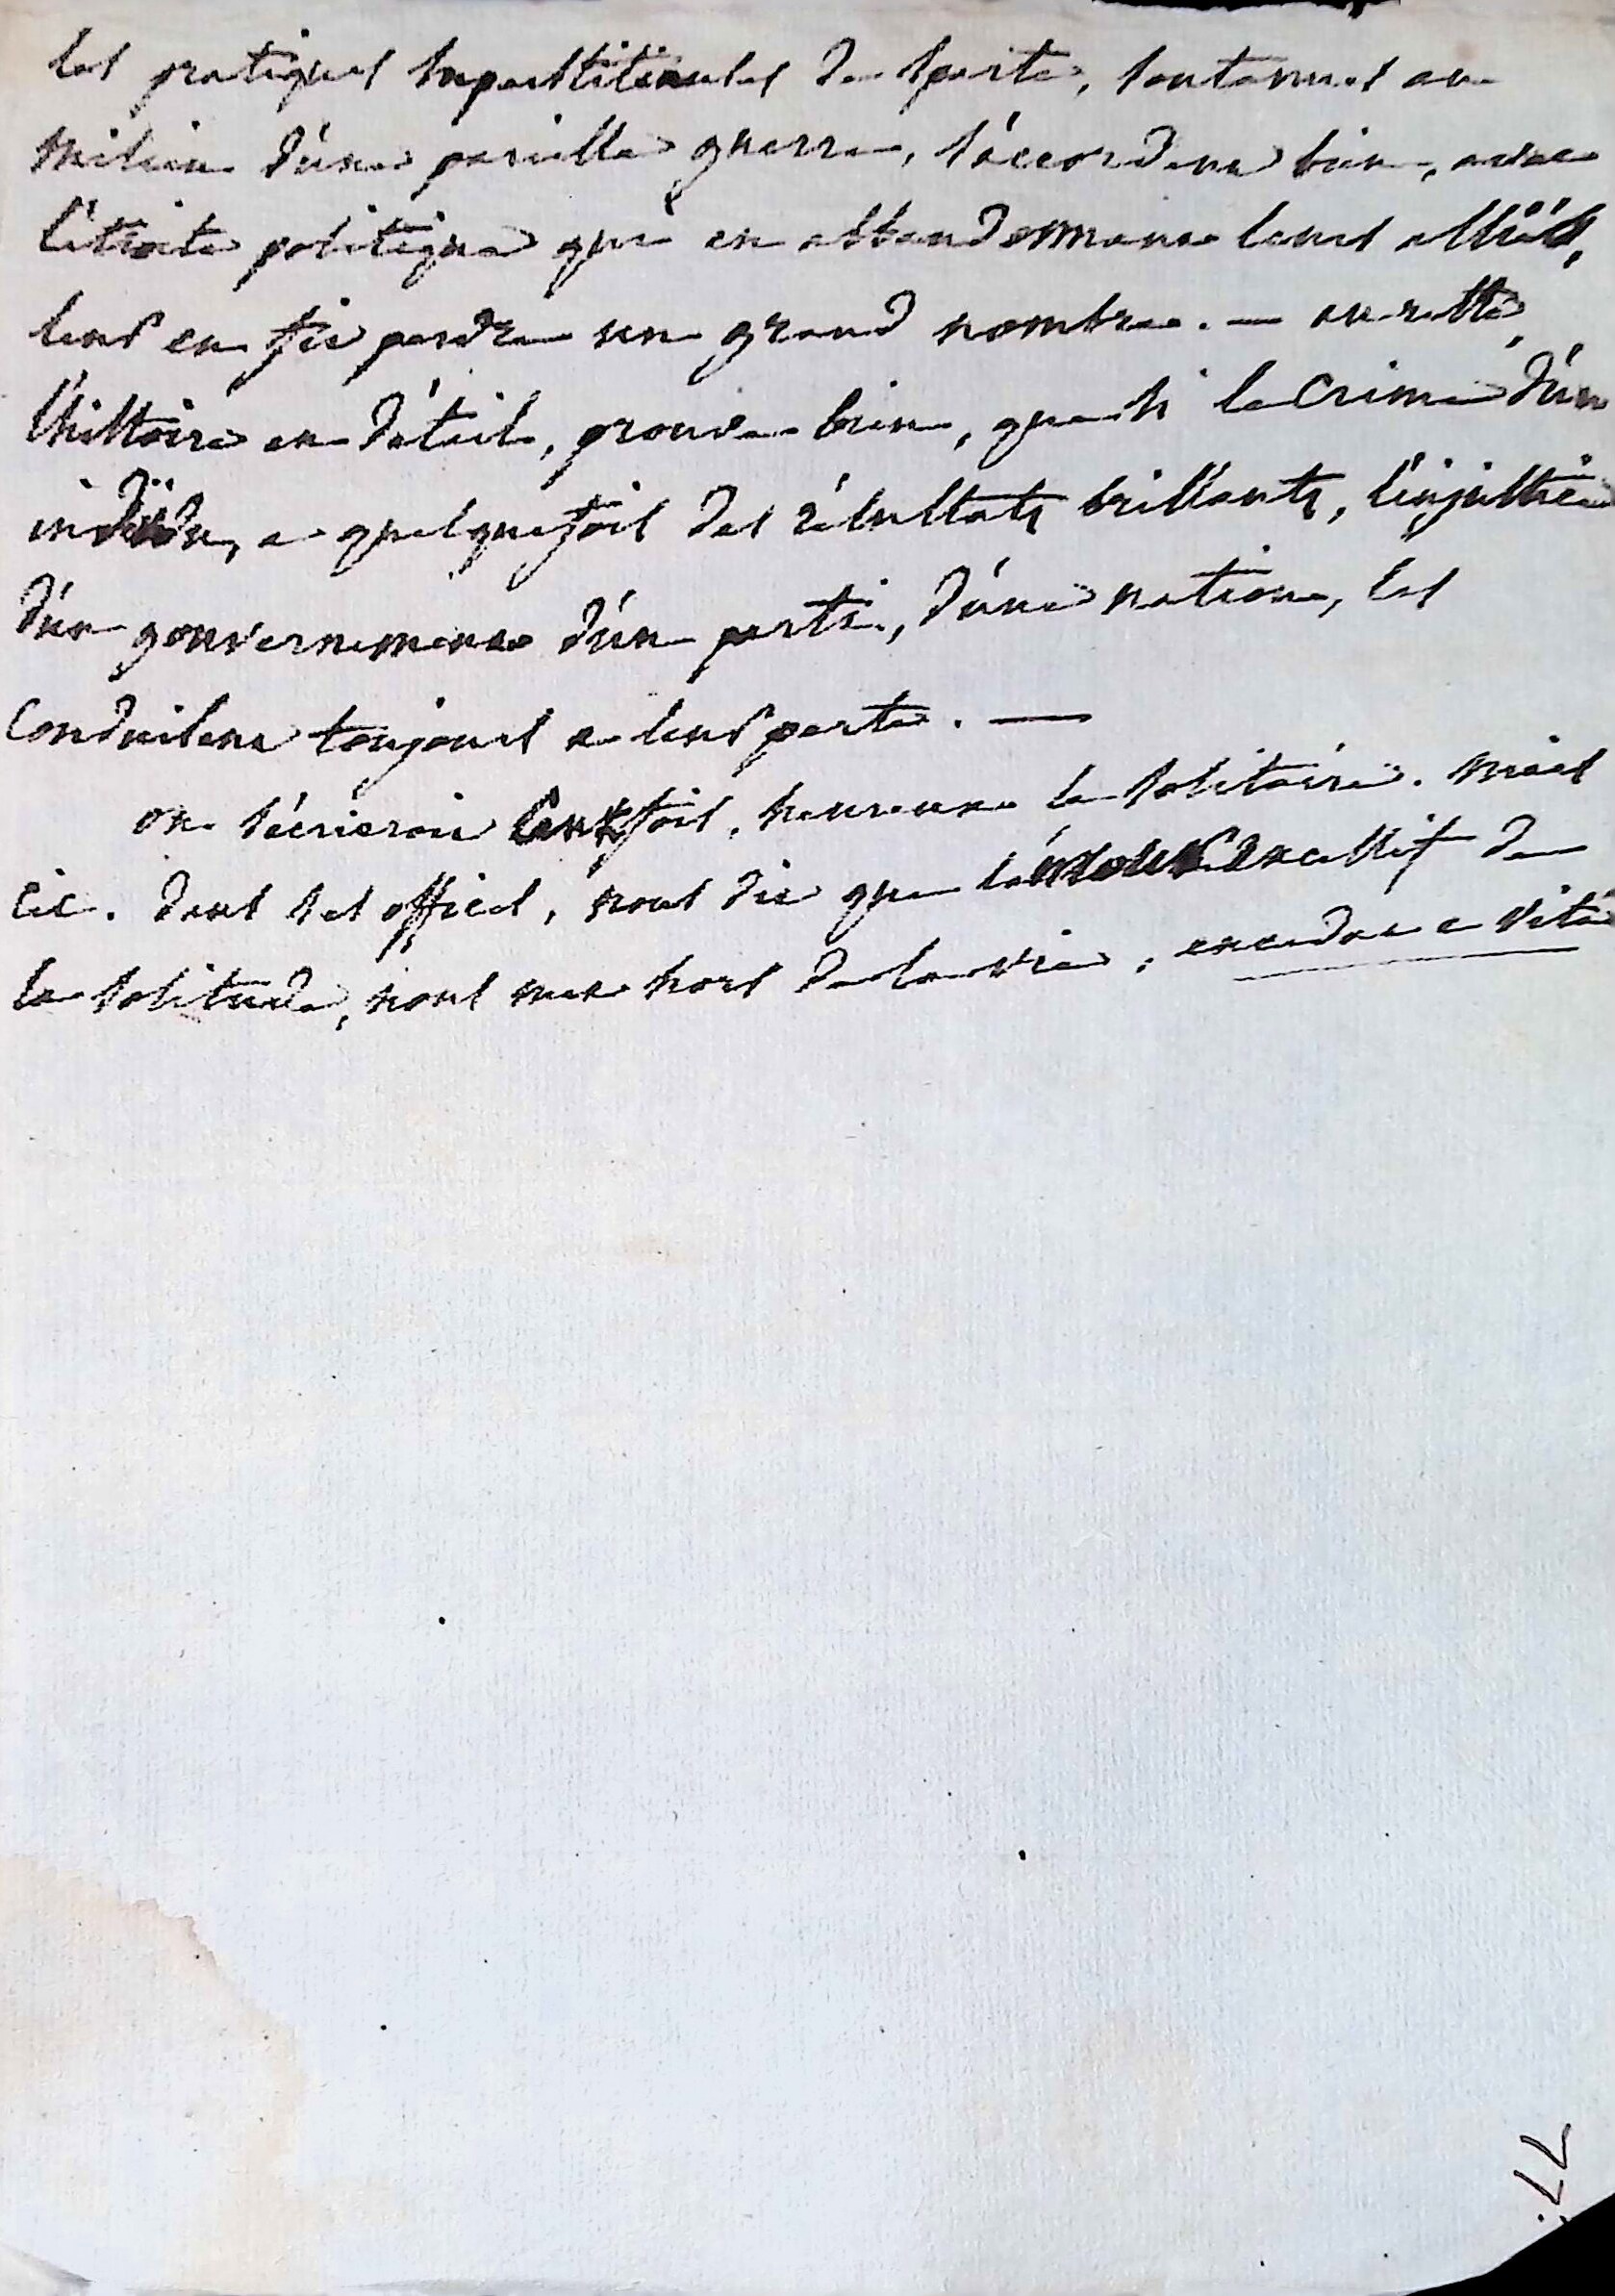 les pratiques superstitieuses de sparte, soutenues au
milieu d'une pareille guerre, s'accordent bien, avec
l'étroite politique qui en abbandonnant leurs alliés,
leur en fit perdre un grand nombre. — au reste,
l'histoire en détail, prouve bien, que si le crime d'un
individu, a quelquefois des résultats brillants, l'injustice
d'un gouvernement d'un parti, d'une nation, les
conduisent toujours a leur perte. —
on s'écrieroit cent fois, heureux le solitaire. mais
cic. dans ses offices, nous dit que l'amour excessif de
la solitude, nous met hors de la vie, excedere e vita
77